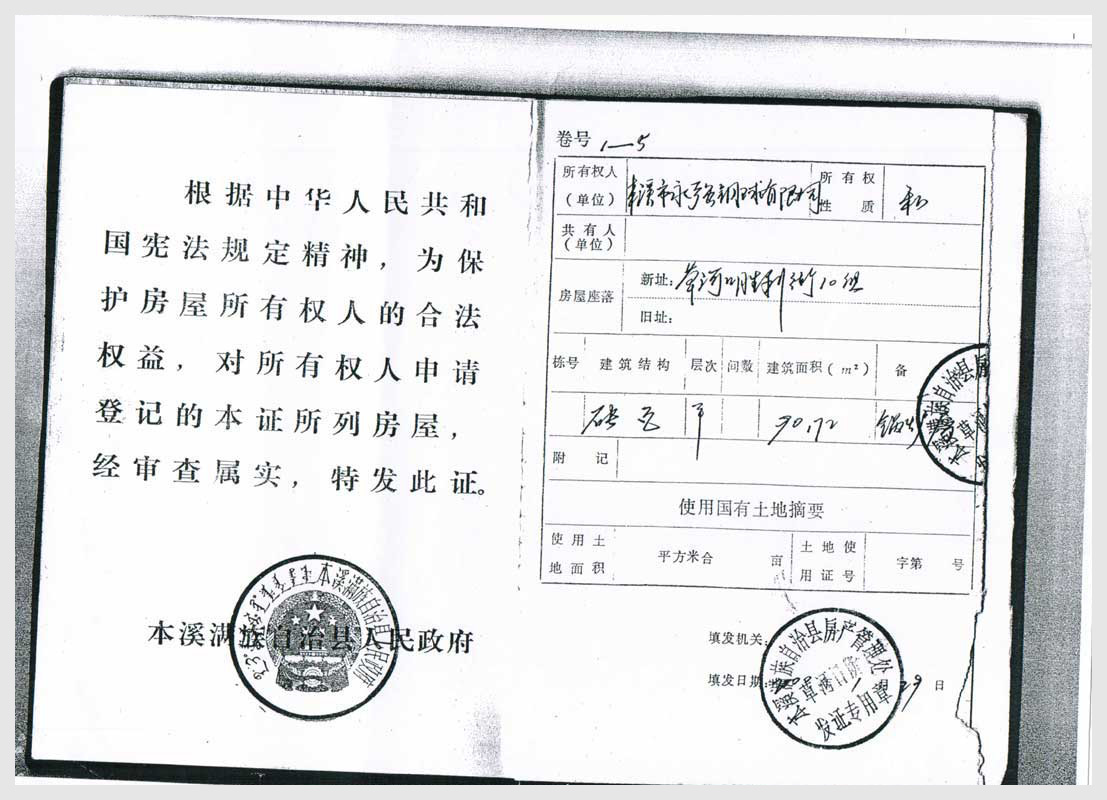 根据中华人民共和
国宪法规定精神，为保
护房屋所有权人的合法
权益，对所有权人申请
登记的本证所列房屋，
经审查属实，特发此证。
本溪满族自治县人民政府
本溪满族自治县人民政府
卷号 1—5
所有权人（单位） 本溪市永强钢球有限公司 所有权性质 私
共有人（单位）
房屋座落 新址：草河口胜利街10组
旧址：
栋号 建筑结构 层次 间数 建筑面积（m²） 备
砖瓦 平 90.72
附记
使用国有土地摘要
使用土地面积 平方米合 亩 土地使用证号 字第 号
填发机关：
填发日期： 29 日
族自治县房产管理处
草河口
发证专用章
自治县房